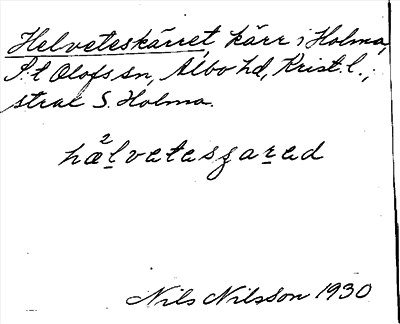 Helveteskärret, kärr i Holma,
S:t Olofs sn, Albo hd, Krist. l.,
strax S. Holma.
hæ²lvetasȥarad
Nils Nilsson 1930